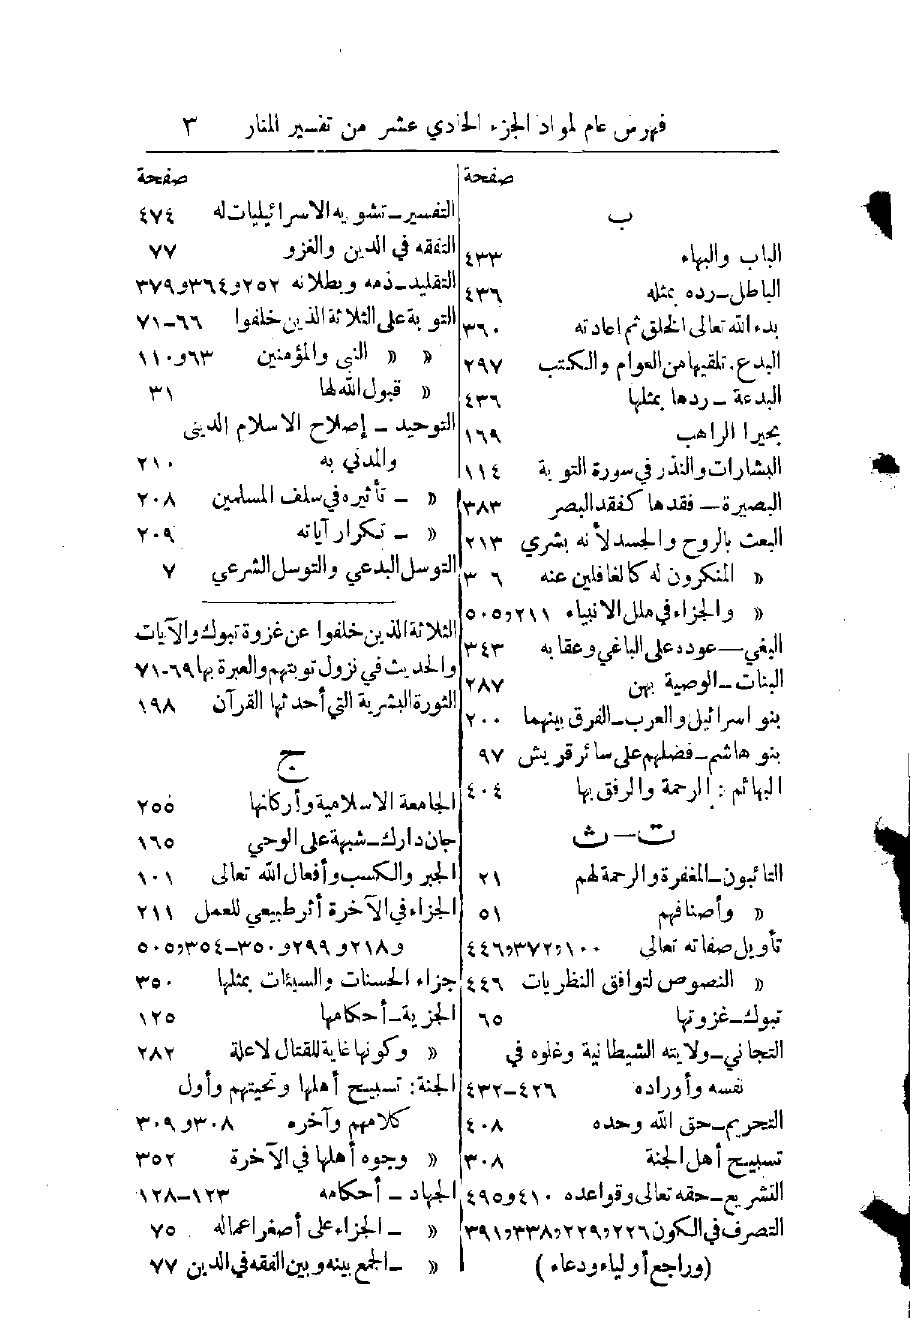 فهرس عام لمواد الجزء الحادي عشر من تفسير المنار ٣
صفحة
ب
الباب والبهاء ٤٣٣
الباطل ــ رده بمثله ٤٣٦
بدء الله تعالى الخلق ثم اعادته ٣٦٠
البدع . تلقيها من العوام والكتب ٢٩٧
البدعة ــ ردها بمثلها ٤٣٦
بحيرا الراهب ١٦٩
البشارات والنذر في سورة التوبة ١١٤
البصيرة ــ فقدها كفقد البصر ٣٨٣
البعث بالروح والجسد لأنه بشري ٢١٣
» المنكرون له كالغافلين عنه ٣٠٦
» والجزاء في ملل الانبياء ٢١١و٥٠٥
البغي ــ عوده على الباغي وعقابه ٣٤٣
البنات ــ الوصية بهن ٢٨٧
بنو اسرائيل والعرب ــ الفرق بينهما ٢٠٠
بنو هاشم ــ فضلهم على سائر قريش ٩٧
البهائم : الرحمة والرفق بها ٤٠٤
ت ــ ث
التائبون ــ المغفرة والرحمة لهم ٢١
» وأصنافهم ٥١
تأويل صفاته تعالى ١٠٠و٣٧٢و٤٤٦
» النصوص لتوافق النظريات ٤٤٦
تبوك ــ غزوتها ٦٥
التجاني ــ ولايته الشيطانية وغلوه في
نفسه وأوراده ٤٢٦ــ٤٣٢
التحريم ــ حق الله وحده ٤٠٨
تسبيح أهل الجنة ٣٠٨
التشريع ــ حقه تعالى وقواعده ٤١٠و٤٩٥
التصرف في الكون ٢٢٦و٢٢٩و٣٣٨و٣٩١
(وراجع أولياء ودعاء)
صفحة
التفسير ــ تشويه الاسرائيليات له ٤٧٤
التفقه في الدين والغزو ٧٧
التقليد ــ ذمه وبطلانه ٢٥٢و٣٦٤و٣٧٩
التوبة على الثلاثة الذين خلفوا ٦٦ــ٧١
» » النبي والمؤمنين ٦٣و١١٠
» قبول الله لها ٣١
التوحيد ــ إصلاح الاسلام الديني
والمدني به ٢١٠
» ــ تأثيره في سلف المسلمين ٢٠٨
» ــ تكرار آياته ٢٠٩
التوسل البدعي والتوسل الشرعي ٧
الثلاثة الذين خلفوا عن غزوة تبوك والآيات
والحديث في نزول توبتهم والعبرة بها ٦٩ــ٧١
الثورة البشرية التي أحدثها القرآن ١٩٨
ج
الجامعة الاسلامية وأركانها ٢٥٥
جان دارك ــ شبهة على الوحي ١٦٥
الجبر والكسب وأفعال الله تعالى ١٠١
الجزاء في الآخرة أثر طبيعي للعمل ٢١١
و٢١٨ و٢٩٩ و٣٥٠ــ٣٥٤و٥٠٥
جزاء الحسنات والسيئات بمثلها ٣٥٠
الجزية ــ أحكامها ١٢٥
» وكونها غاية للقتال لا علة ٢٨٢
الجنة : تسبيح أهلها وتحيتهم وأول
كلامهم وآخره ٣٠٨و٣٠٩
» وجوه أهلها في الآخرة ٣٥٢
الجهاد ــ أحكامه ١٢٣ــ١٢٨
» ــ الجزاء على أصغر اعماله ٧٥
» ــ الجمع بينه وبين الفقه في الدين ٧٧